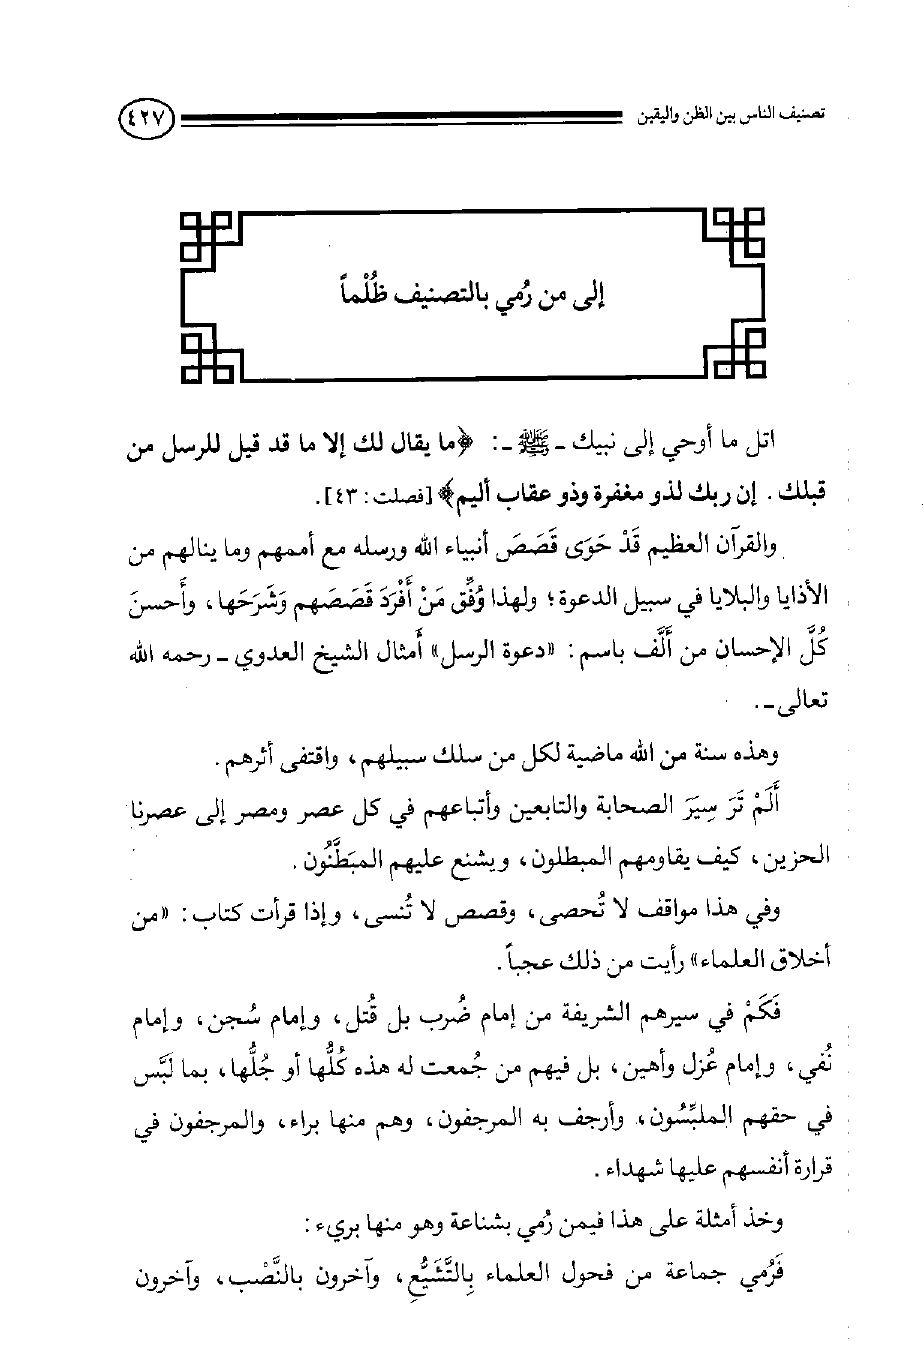 تصنيف الناس بين الظن واليقين
٤٢٧
إلى من رُمي بالتصنيف ظُلْماً
اتل ما أوحي إلى نبيك ـ ﷺ ـ: ﴿ما يقال لك إلا ما قد قيل للرسل من
قبلك . إن ربك لذو مغفرة وذو عقاب أليم﴾ [فصلت: ٤٣].
والقرآن العظيم قَدْ حَوَى قَصَصَ أنبياء الله ورسله مع أممهم وما ينالهم من
الأذايا والبلايا في سبيل الدعوة؛ ولهذا وُفِّق مَنْ أَفْرَدَ قَصَصَهم وَشَرَحَها، وأَحسنَ
كُلَّ الإحسان من أَلَّف باسم: «دعوة الرسل» أمثال الشيخ العدوي ـ رحمه الله
تعالى ـ.
وهذه سنة من الله ماضية لكل من سلك سبيلهم، واقتفى أثرهم.
أَلَمْ تَرَ سِيَرَ الصحابة والتابعين وأتباعهم في كل عصر ومصر إلى عصرنا
الحزين، كيف يقاومهم المبطلون، ويشنع عليهم المبَطَّنُون.
وفي هذا مواقف لا تُحصى، وقصص لا تُنسى، وإذا قرأت كتاب: «من
أخلاق العلماء» رأيت من ذلك عجباً.
فَكَمْ في سيرهم الشريفة من إمام ضُرب بل قُتل، وإمام سُجن، وإمام
نُفي، وإمام عُزل وأهين، بل فيهم من جُمعت له هذه كُلُّها أو جُلُّها، بما لَبَّس
في حقهم الملبِّسُون، وأرجف به المرجفون، وهم منها براء، والمرجفون في
قرارة أنفسهم عليها شهداء.
وخذ أمثلة على هذا فيمن رُمي بشناعة وهو منها بريء:
فَرُمي جماعة من فحول العلماء بِالتَّشَيُّعِ، وآخرون بالنَّصْب، وآخرون